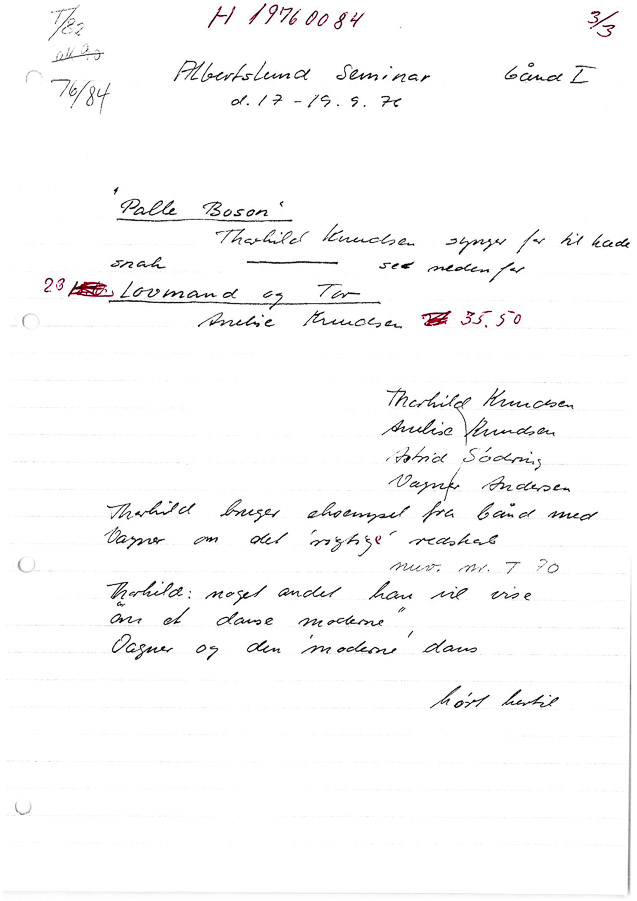 T/82
H 19760084
3/3
76/84
Albertslund Seminar bånd I
d. 17-19. 9. 76
"Palle Boson"
Thorkild Knudsen synger for til kæde
snak ——— se nedenfor
23 Lovmand og Tor
Anelise Knudsen 35.50
Thorkild Knudsen
Anelise Knudsen
Astrid Södring
Vagner Andersen
Thorkild bruger eksempel fra bånd med
Vagner om det 'rigtige' redskab
nuv. nr. T 70
Thorkild: noget andet han vil vise
om at danse moderne"
Vagner og den 'moderne' dans
hørt hertil